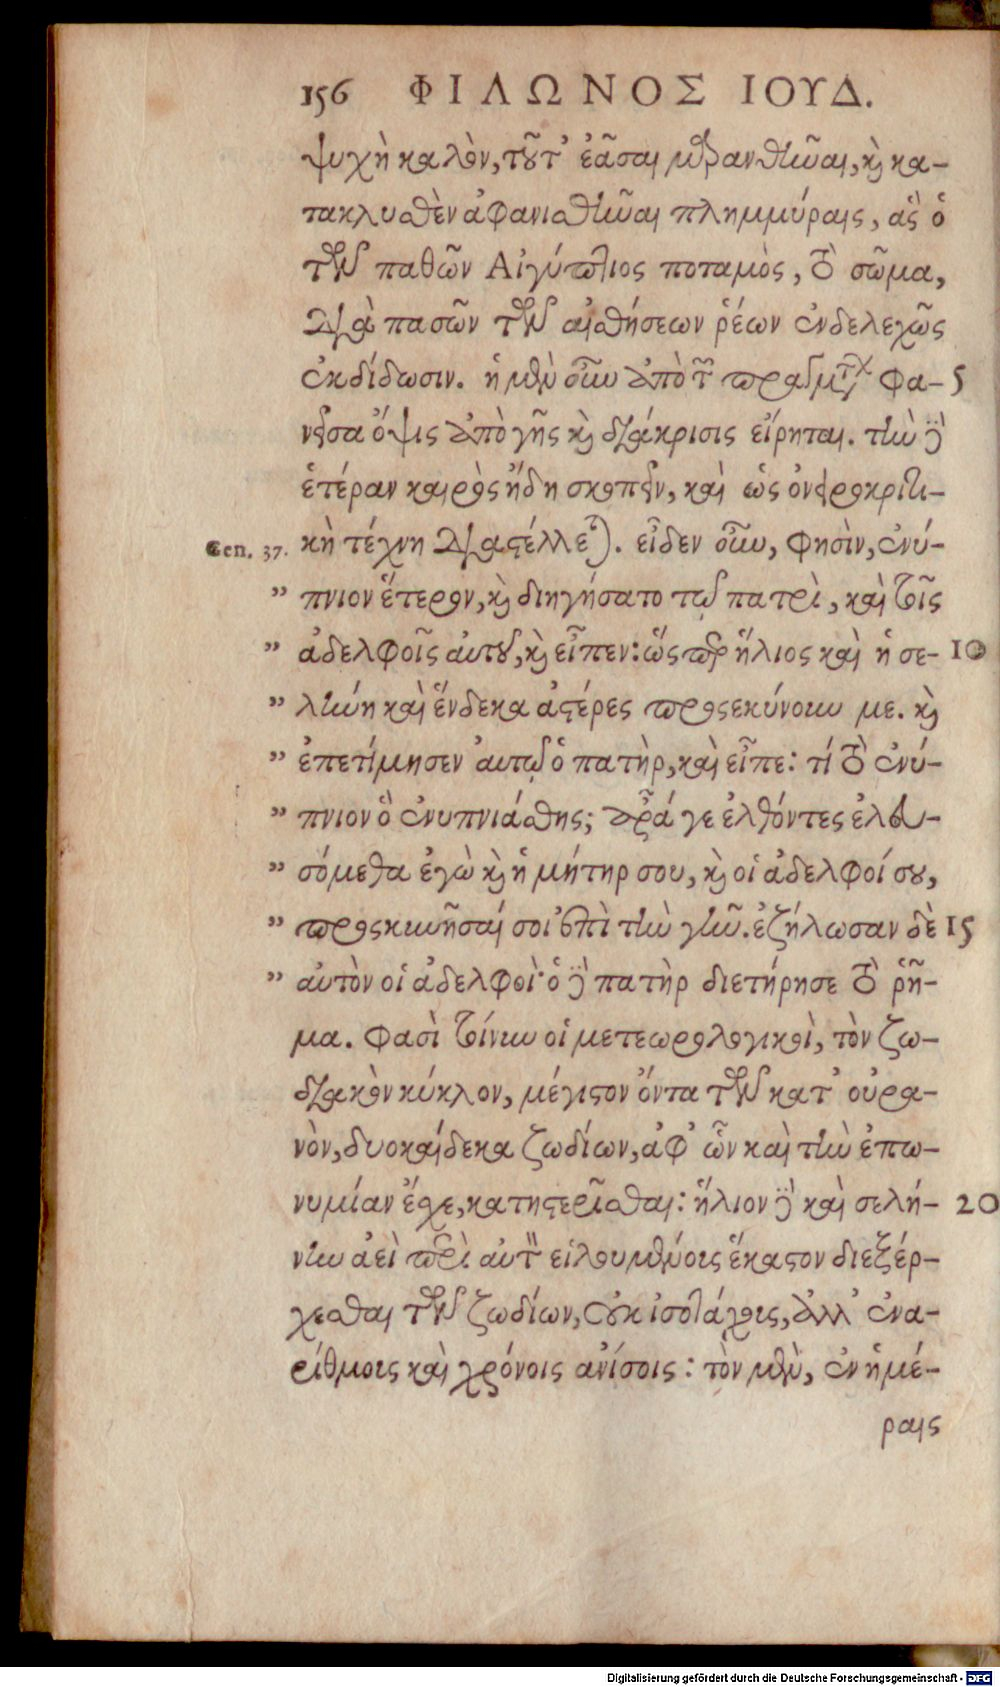 156 ΦΙΛΩΝΟΣ ΙΟΥΔ.
ψυχὴ καλὸν, τοῦτ' ἐᾶσαι μαρανθῆναι, καὶ κα-
τακλυσθὲν ἀφανισθῆναι πλημμύραις, ἃς ὁ
τῶν παθῶν Αἰγύπτιος ποταμὸς, τὸ σῶμα,
διὰ πασῶν τῶν αἰσθήσεων ῥέων ἐνδελεχῶς
ἐκδίδωσιν. ἡ μὲν οὖν ἀπὸ τῶν πραγμάτων φα- 5
νεῖσα ὄψις ἀπὸ γῆς καὶ διάκρισις εἴρηται. τὴν δὲ
ἑτέραν καιρὸς ἤδη σκοπεῖν, καὶ ὡς ὀνειροκριτι-
Gen. 37. κὴ τέχνη διαστέλλεται. εἶδεν οὖν, φησὶν, ἐνύ-
" πνιον ἕτερον, καὶ διηγήσατο τῷ πατρὶ, καὶ τοῖς
" ἀδελφοῖς αὐτοῦ, καὶ εἶπεν: ὥσπερ ἥλιος καὶ ἡ σε- 10
" λήνη καὶ ἕνδεκα ἀστέρες προσεκύνουν με. καὶ
" ἐπετίμησεν αὐτῷ ὁ πατὴρ, καὶ εἶπε: τί τὸ ἐνύ-
" πνιον ὃ ἐνυπνιάσθης; ἆρά γε ἐλθόντες ἐλευ-
" σόμεθα ἐγὼ καὶ ἡ μήτηρ σου, καὶ οἱ ἀδελφοί σου,
" προσκυνῆσαί σοι ἐπὶ τὴν γῆν. ἐζήλωσαν δὲ 15
" αὐτὸν οἱ ἀδελφοὶ· ὁ δὲ πατὴρ διετήρησε τὸ ῥῆ-
μα. Φασὶ τοίνυν οἱ μετεωρολογικοὶ, τὸν ζω-
διακὸν κύκλον, μέγιστον ὄντα τῶν κατ' οὐρα-
νὸν, δυοκαίδεκα ζωδίων, ἀφ' ὧν καὶ τὴν ἐπω-
νυμίαν ἔχε, κατηστερίσθαι: ἥλιον δὲ καὶ σελή- 20
νην ἀεὶ περὶ αὐτὸν εἱλουμένους ἕκαστον διεξέρ-
χεσθαι τῶν ζωδίων, οὐκ ἰσοτάχοις, ἀλλ' ἐνα-
ρίθμοις καὶ χρόνοις ἀνίσοις: τὸν μὲν, ἐν ἡμέ-
ραις
Digitalisierung gefördert durch die Deutsche Forschungsgemeinschaft - DFG